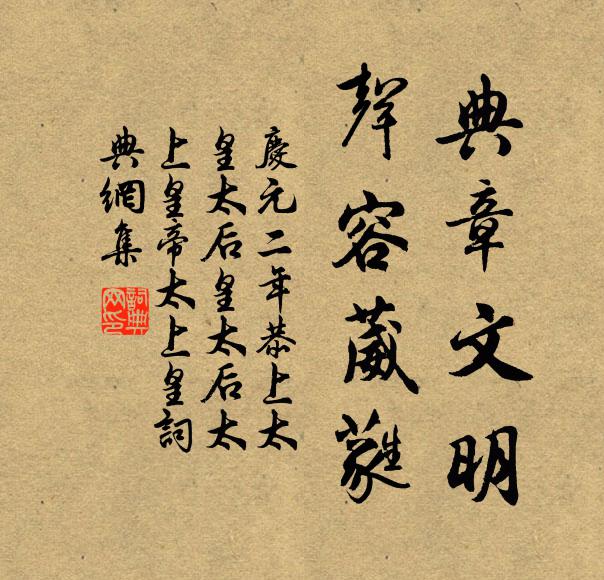 典章文明
聲容葳蕤
慶元二年恭上太
皇太后皇太后太
上皇帝太上皇詞
典網集
詞典
网印